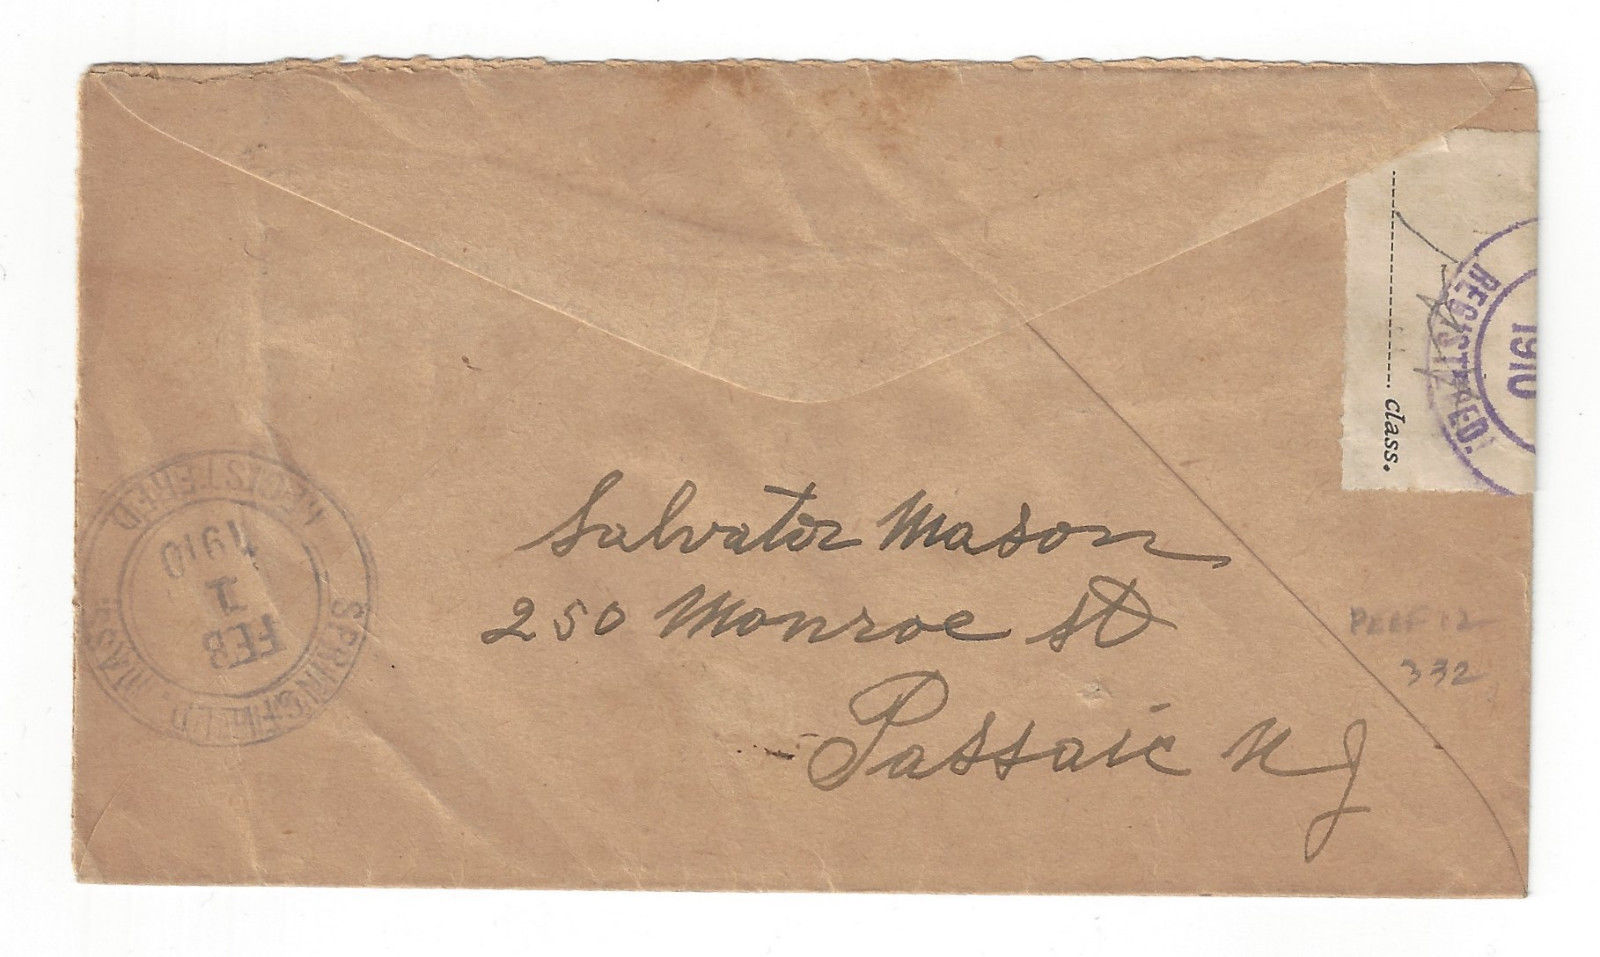 Salvator Mason
250 Monroe St
Passaic N J
PERF 12
332
class.
REGISTERED.
1910
REGISTERED
1910
1
FEB
SPRINGFIELD, MASS.